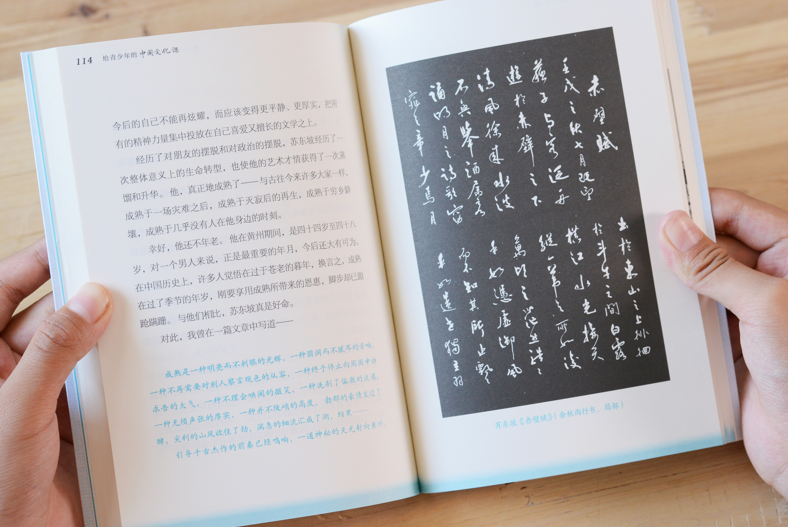 114 给青少年的中国文化课
今后的自己不能再炫耀，而应该变得更平静、更厚实，把所
有的精神力量集中投放在自己喜爱又擅长的文学之上。
经历了对朋友的摆脱和对政治的摆脱，苏东坡经历了一
次整体意义上的生命转型，也使他的艺术才情获得了一次蒸
馏和升华。他，真正地成熟了——与古往今来许多大家一样，
成熟于一场灾难之后，成熟于灭寂后的再生，成熟于穷乡僻
壤，成熟于几乎没有人在他身边的时刻。
幸好，他还不年老。他在黄州期间，是四十四岁至四十八
岁，对一个男人来说，正是最重要的年月，今后还大有可为。
在中国历史上，许多人觉悟在过于苍老的暮年，换言之，成熟
在过了季节的年岁，刚要享用成熟所带来的恩惠，脚步却已踉
跄蹒跚。与他们相比，苏东坡真是好命。
对此，我曾在一篇文章中写道——
成熟是一种明亮而不刺眼的光辉，一种圆润而不腻耳的音响，
一种不再需要对别人察言观色的从容，一种终于停止向周围申诉
求告的大气，一种不理会哄闹的微笑，一种洗刷了偏激的淡漠，
一种无须声张的厚实，一种并不陡峭的高度。勃郁的豪情发过了
酵，尖利的山风收住了劲，湍急的细流汇成了湖，结果——
引导千古杰作的前奏已经鸣响，一道神秘的天光射向黄州，
赤壁赋
壬戌之秋七月既望
蘇子与客泛舟
遊於赤壁之下
清風徐来水波
不兴举酒属客
诵明月之诗歌窈
窕之章少焉月
出於东山之上徘徊
於斗牛之间白露
横江水光接天
纵一苇之所如凌
萬顷之茫然浩浩
乎如凭虚御風
而不知其所止飘
飘乎如遗世独立羽
苏东坡《赤壁赋》（余秋雨行书，局部）